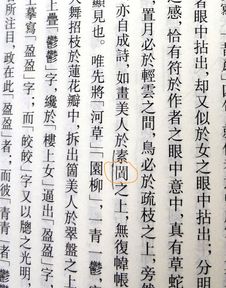 者眼中拈出,却又似於女之眼中拈出,分明
之感,恰有符於作者之眼中意中,真有草蛇
置月必於輕雲之間,鳥必於疏枝之上,旁
亦自成詩,如畫美人於素之上,無復幃帳
顯見也。唯先將「河草」「園柳」,一青一鬱,
大舞招枝於蓮花瓣中,拆出箇美人於翠盤之上
上疊「鬱鬱」字,纔於「樓上女」逼出「盈盈」字,
上摹寫「盈盈」字;而「皎皎」字又以牕之光明,
所注目,政在此「盈盈」者;而彼「青青」者「鬱鬱